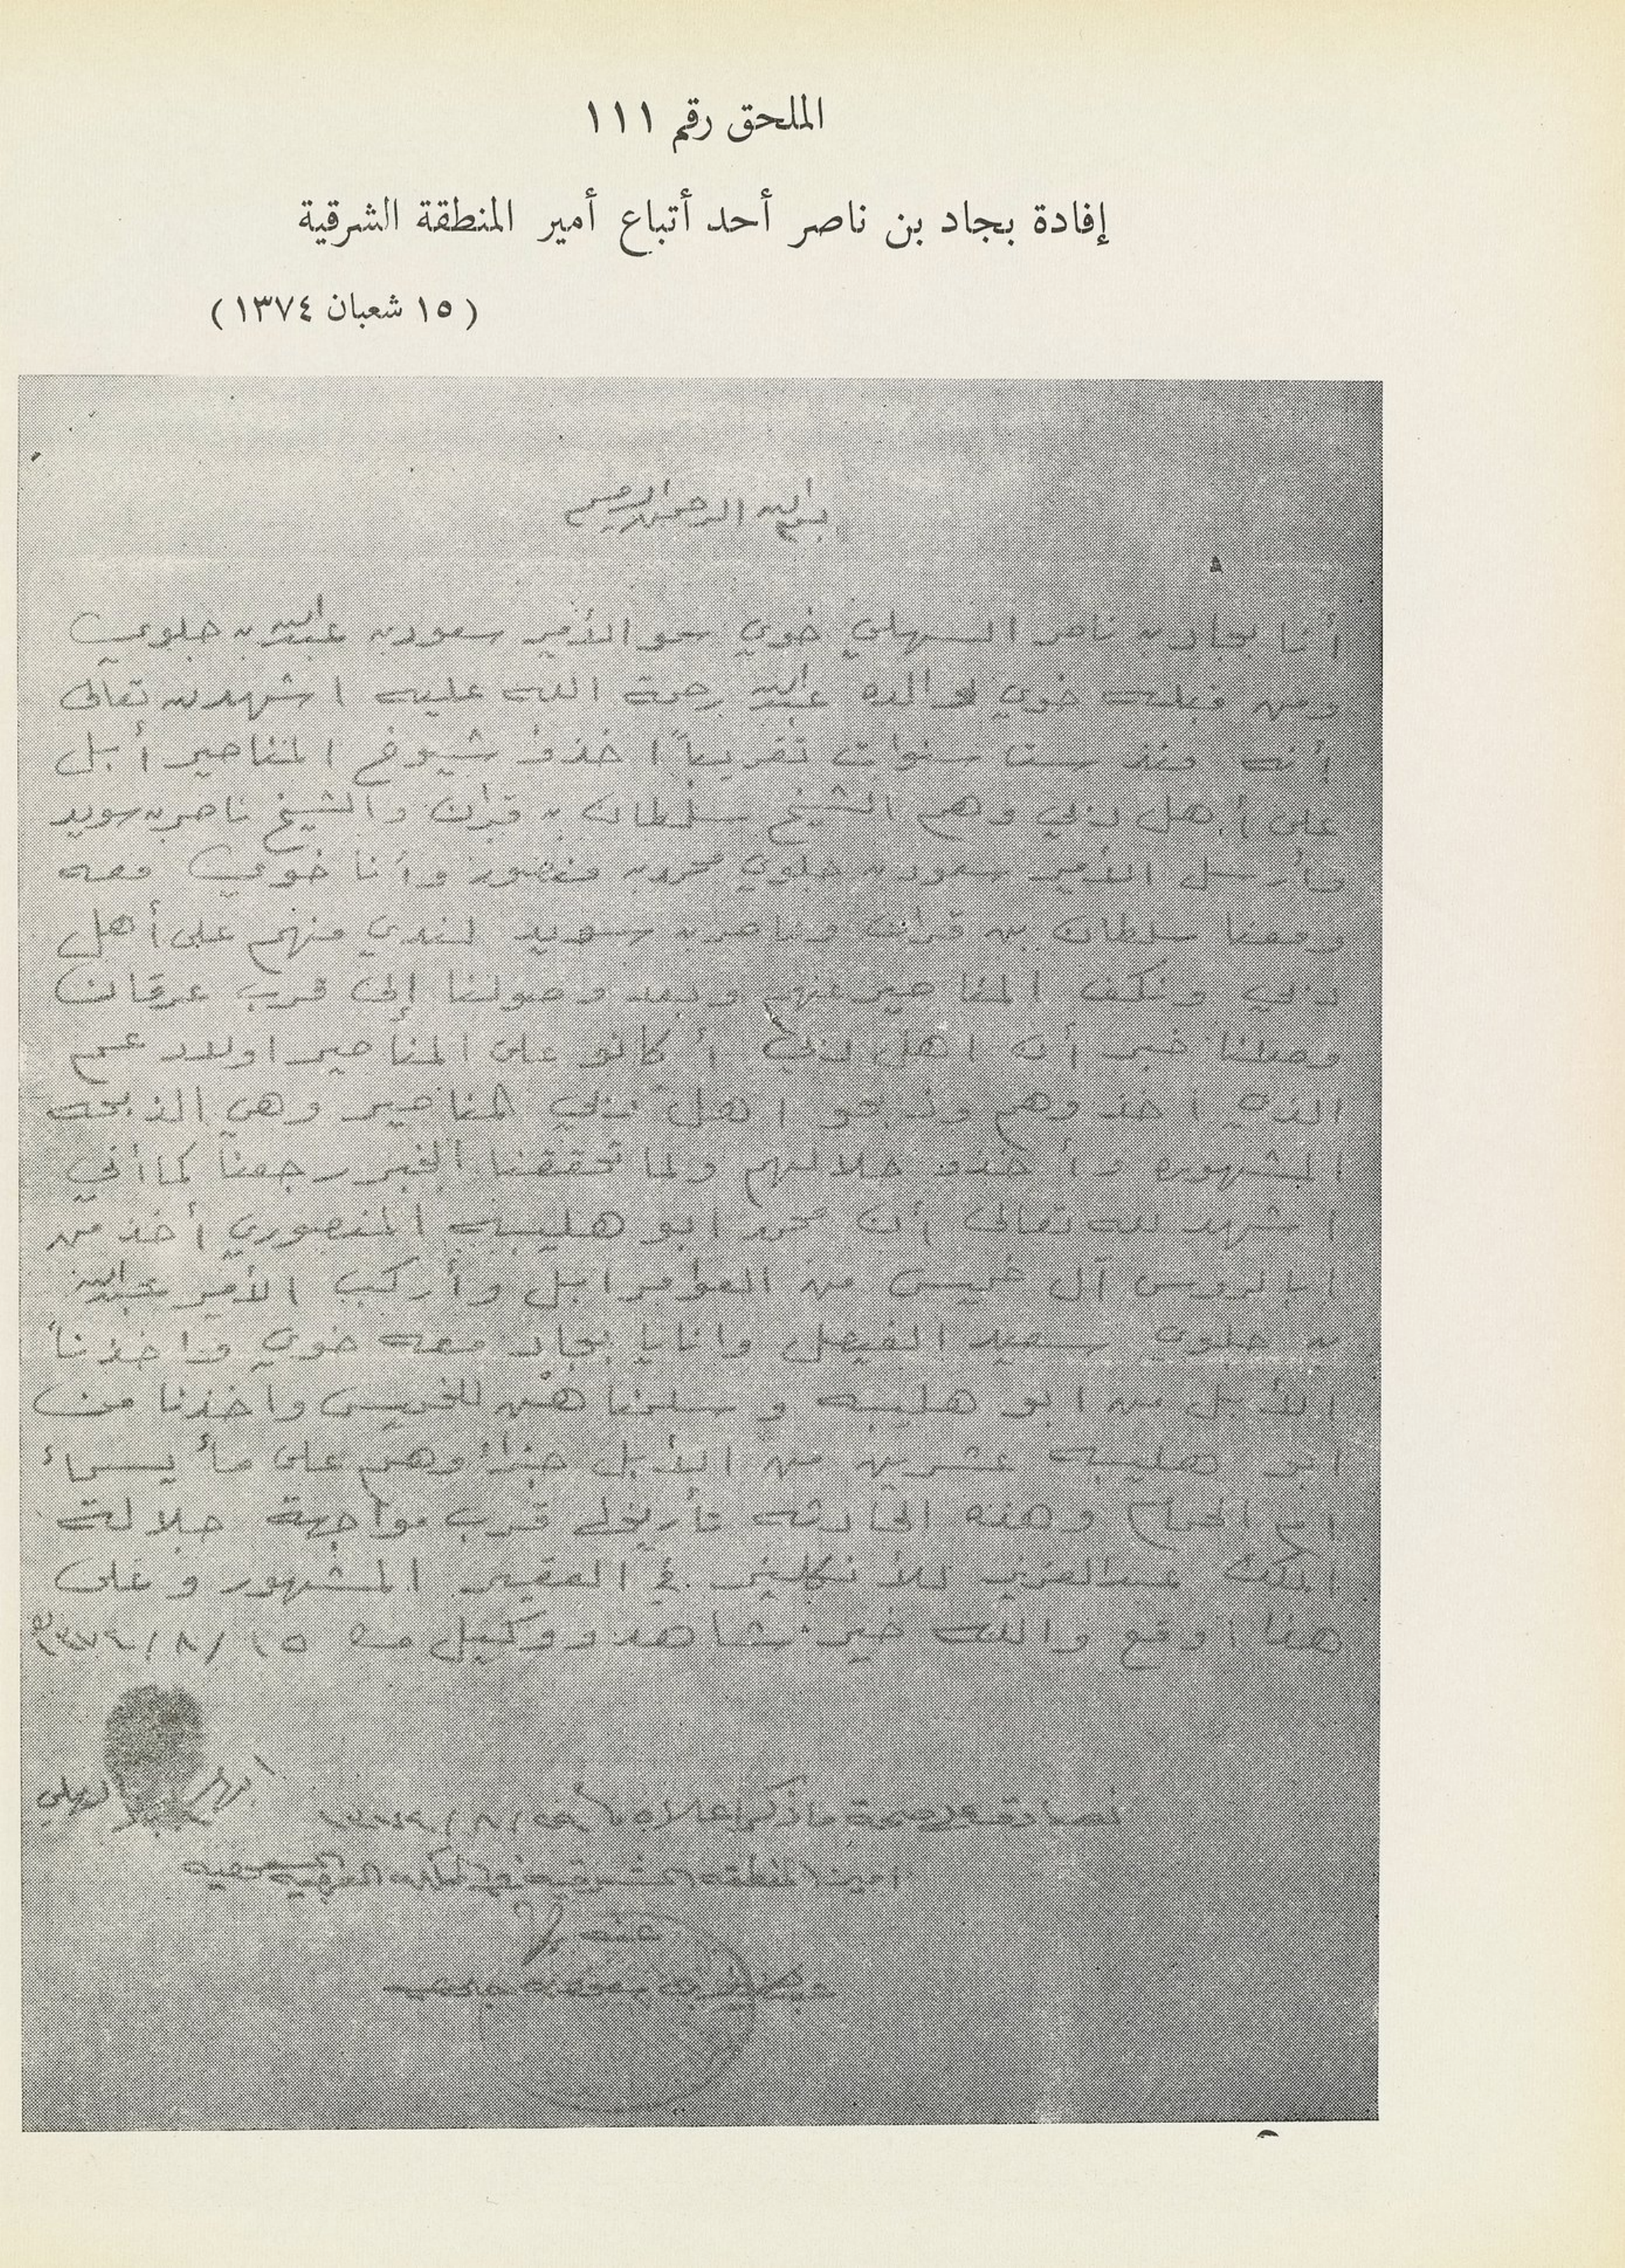 الملحق رقم ١١١
إفادة بجاد بن ناصر أحد أتباع أمير المنطقة الشرقية
(١٥ شعبان ١٣٧٤)
بسم الله الرحمن الرحيم
أنا بجاد بن ناصر السهلي خوي سمو الأمير سعود بن عبدالله بن جلوي
ومن قبله خوي لوالده عبدالله رحمة الله عليه اشهد لله تعالى
أنه منذ ست سنوات تقريباً اخذو شيوخ المناصير أبل
على أهل دبي وهم الشيخ سلطان بن قران والشيخ ناصر بن سويد
وأرسل الأمير سعود بن جلوي محمد بن منصور وأنا خوي معه
ومعنا سلطان بن قران وناصر بن سويد لندي منهم على أهل
دبي ونكف المناصير عنهم وبعد وصولنا إلى قرب عرقان
وصلنا خبر أن اهل دبي أكانو على المناصير اولاد عمهم
الذي اخذوهم وذبحو اهل دبي المناصير وهي الذبحه
المشهوره وأخذو حلالهم ولما تحققنا الخبر رجعنا كما أني
اشهد لله تعالى أن محمد ابو هليبه المنصوري أخذ من
ابالروس آل خميس من العوامر ابل وأركب الأمير عبدالله
بن جلوي سعيد الفيصل وانا يا بجاد معه خوي واخذنا
الأبل من ابو هليبه وسلمناهن للخميس واخذنا من
ابو هليبه عشرين من الأبل جزاً وهم على مأ يسماء
ام الحمام وهذه الحادثه تأريخها قرب مواجهة جلالة
الملك عبدالعزيز للأنكليز في العقير المشهور وعلى
هذا اوقع والله خير شاهد ووكيل ١٥/٨/١٣٧٤
السهلي
نصادق على صحة ما ذكر اعلاه ١٣٧٤/٨/
امير المنطقه الشرقيه في المملكه العربيه السعوديه
عنه